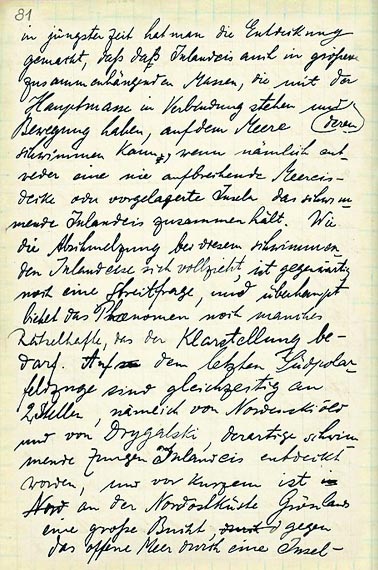 81
in jüngster Zeit hat man die Entdeckung
gemacht, daß daß Inlandeis auch in größeren
zusammenhängenden Massen, die mit der
Hauptmasse in Verbindung stehen und
Bewegung haben, auf dem Meere (deren
schwimmen kann, wenn nämlich ent-
weder eine nie aufbrechende Meereis-
decke oder vorgelagerte Inseln das schwim-
mende Inlandeis zusammenhält. Wie
die Abschmelzung bei diesem schwimmen
den Inlandeise sich vollzieht, ist gegenwärtig
noch eine Streitfrage, und überhaupt
bietet das Phänomen noch manches
Rätselhafte, das der Klarstellung be-
darf. Auf den letzten Südpolar-
feldzuge sind gleichzeitig an
2 Stellen, nämlich von Nordenskiöld
und von Drygalski, derartige schwim
mende Zungen Inlandeis entdeckt
worden, und vor kurzem ist in
Nord an der Nordostküste Grönlands
eine große Bucht, d gegen
das offene Meer durch eine Insel-